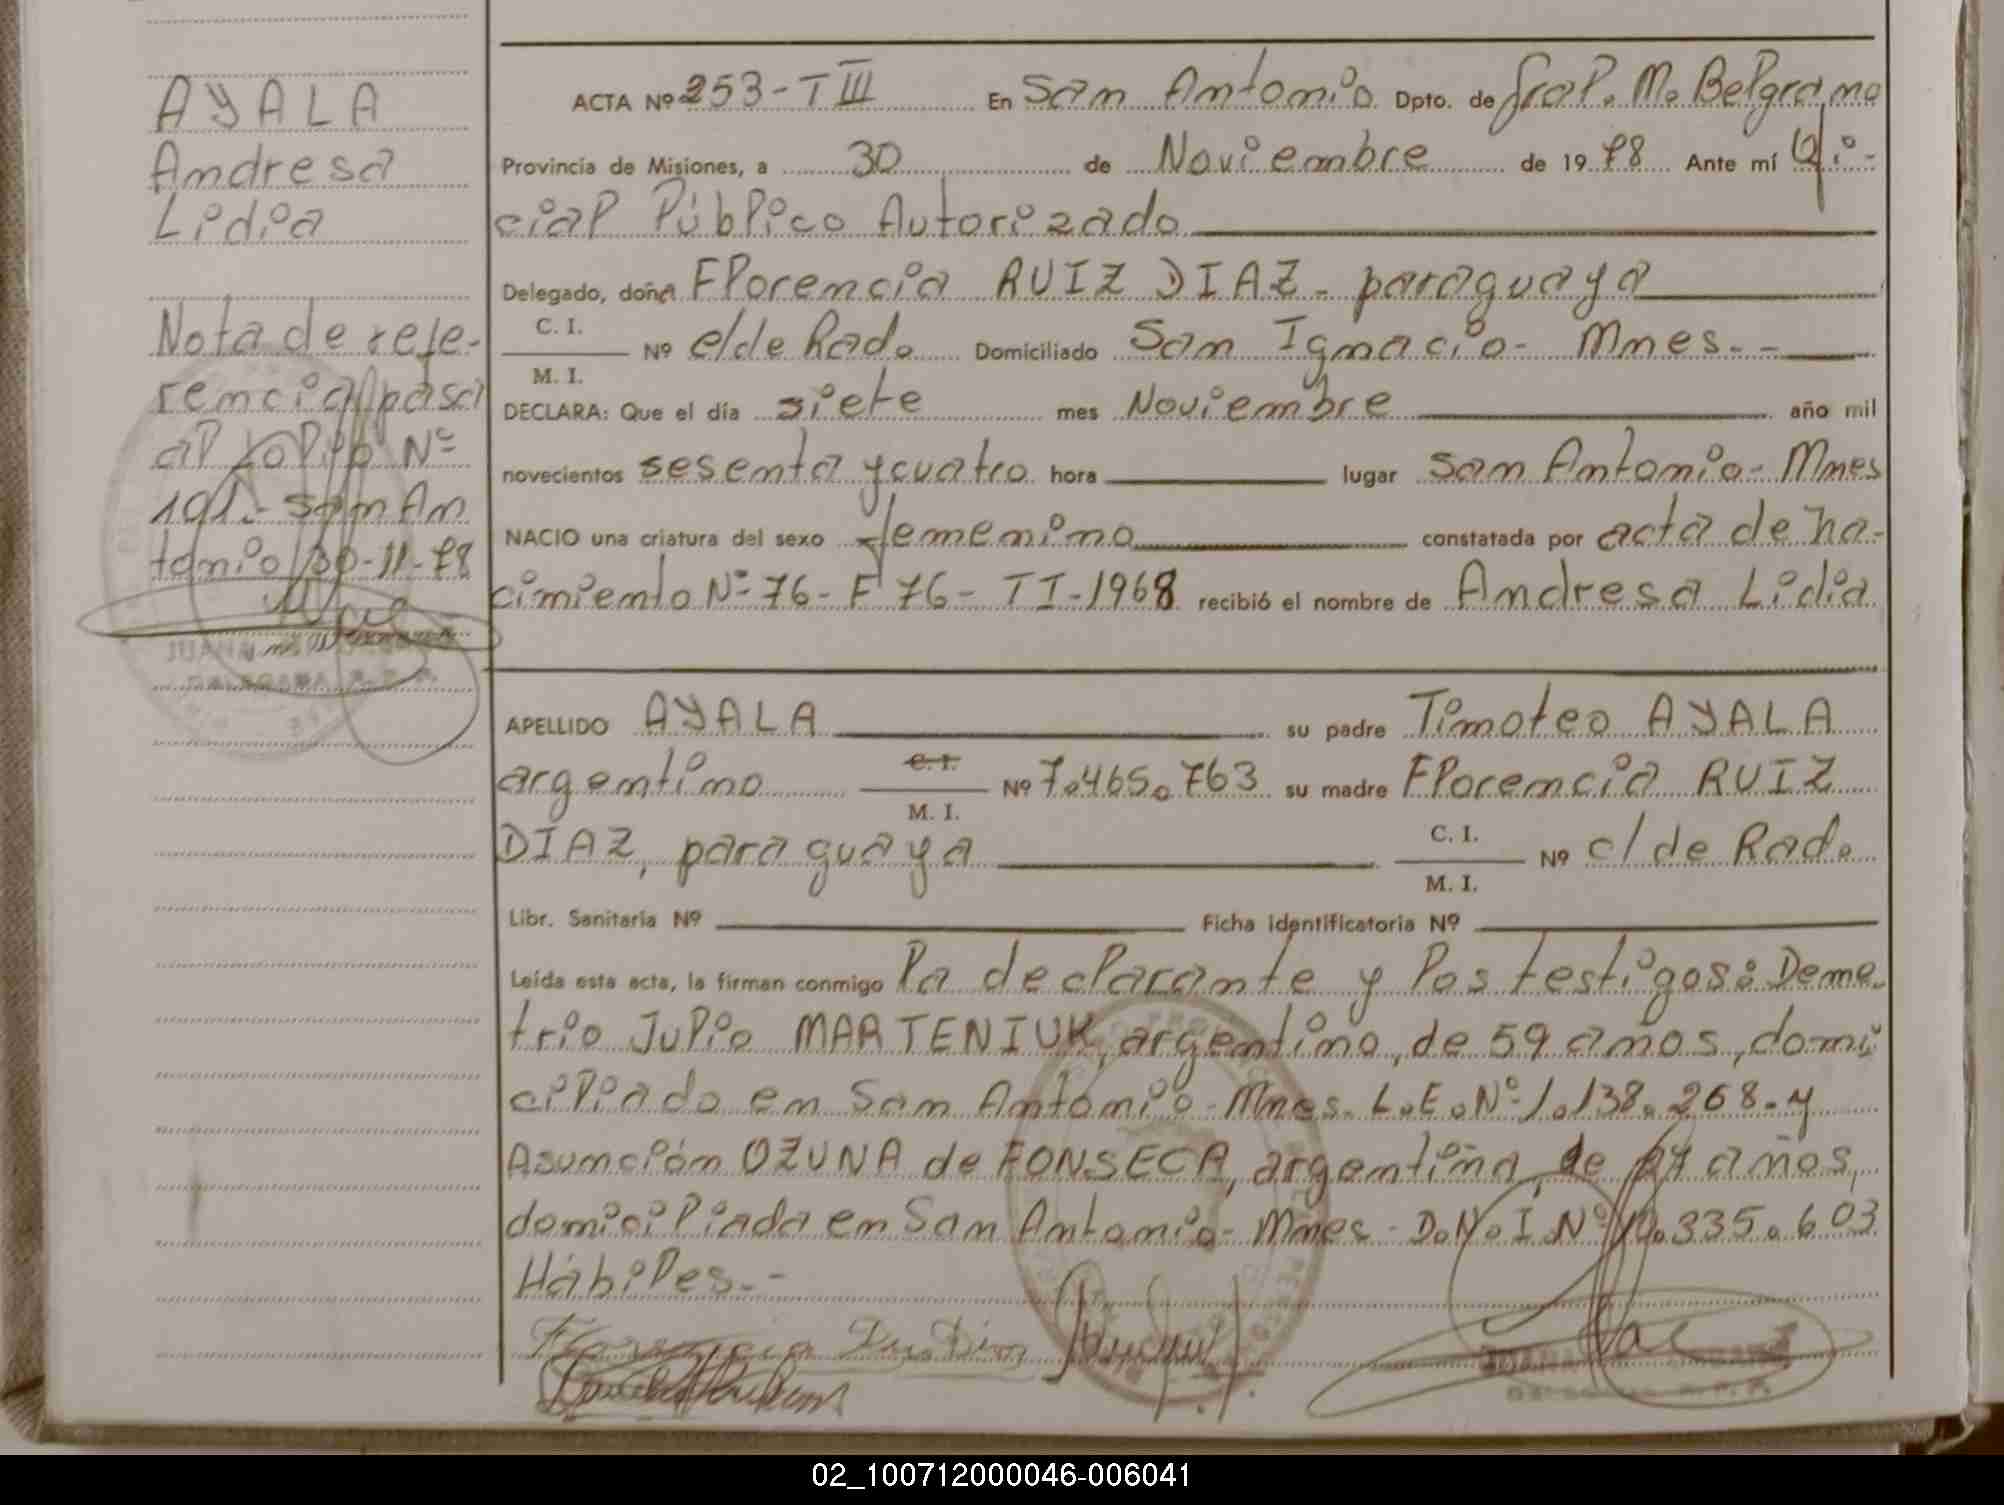 AYALA
Andresa
Lidia
Nota de refe-
rencia pasa
al folio Nº
191.- San An
tonio 30-11-78
ACTA Nº 253-TIII En San Antonio Dpto. de Gral. M. Belgrano
Provincia de Misiones, a 30 de Noviembre de 1978 Ante mí Ofi-
cial Público Autorizado
Delegado, doña Florencia RUIZ DIAZ - paraguaya
C. I.
M. I. Nº c/de Rad. Domiciliado San Ignacio - Mnes.-
DECLARA: Que el día siete mes Noviembre año mil
novecientos sesenta y cuatro hora lugar San Antonio - Mnes
NACIO una criatura del sexo femenino constatada por acta de na-
cimiento Nº 76 - F 76 - TI - 1968 recibió el nombre de Andresa Lidia
APELLIDO AYALA su padre Timoteo AYALA
argentino C. I.
M. I. Nº 7.465.763 su madre Florencia RUIZ
DIAZ, paraguaya C. I.
M. I. Nº c/de Rad.
Libr. Sanitaria Nº Ficha identificatoria Nº
Leída esta acta, la firman conmigo la declarante y los testigos: Deme-
trio Julio MARTENIUK, argentino, de 59 años, domi
ciliado en San Antonio - Mnes. L.E. Nº 1.138.268 - y
Asunción OZUNA de FONSECA, argentina, de años,
domiciliada en San Antonio - Mnes - D.N.I. Nº 10.335.603
Hábiles.-
02_100712000046-006041